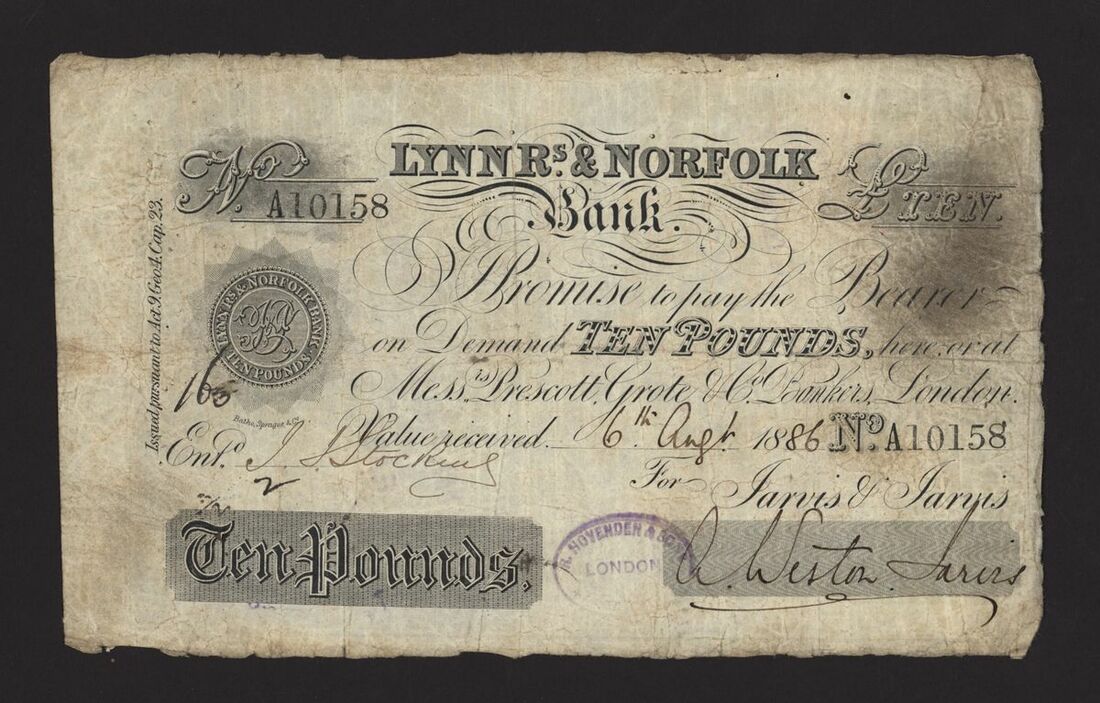 LYNN Rs. & NORFOLK
Bank.
No. A10158
£ TEN.
Issued pursuant to Act 9 Geo 4. Cap. 23.
LYNN RS & NORFOLK BANK
TEN POUNDS
I Promise to pay the Bearer
on Demand TEN POUNDS, here, or at
Messrs Prescott, Grote & Co. Bankers, London.
Bathe, Sprague, & Co.
Value received 6th Augt. 1886 No. A10158
Entd. J. Stocking
2
For Jarvis & Jarvis
Ten Pounds.
R. HOVENDEN & SONS
LONDON
A. Weston Jarvis